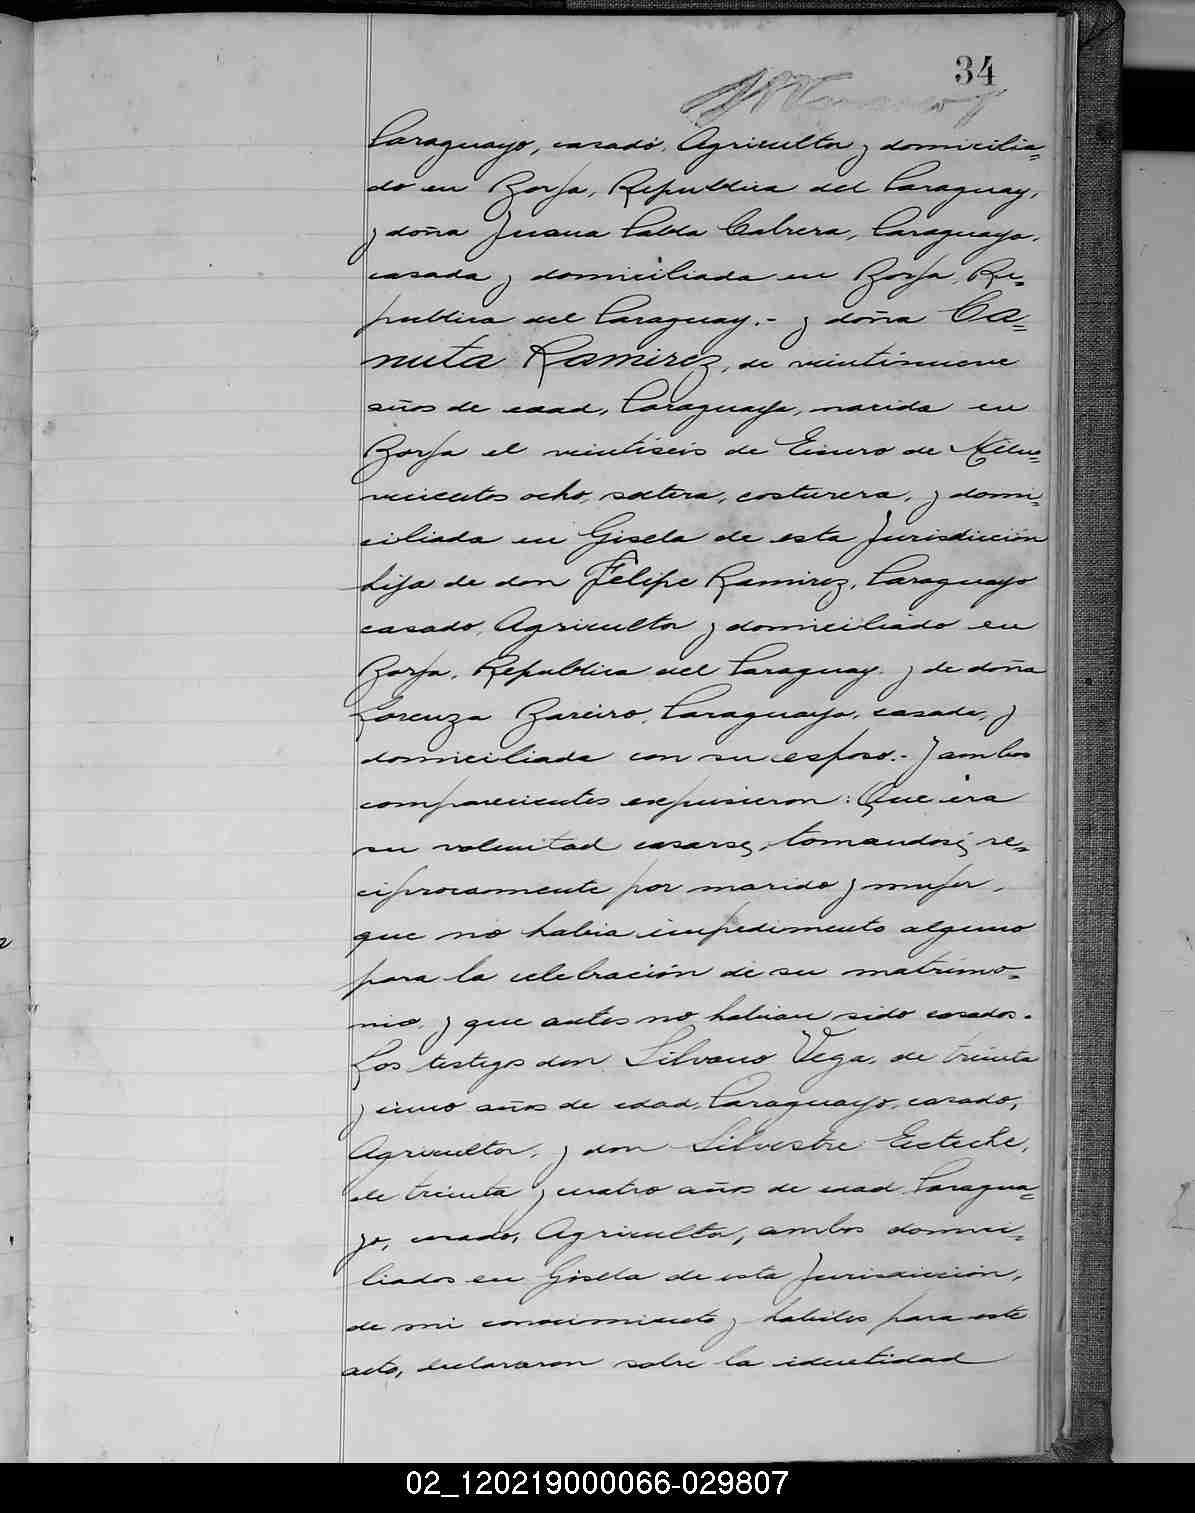 34
Paraguayo, casado, Agricultor y domicilia=
do en Borja, Republica del Paraguay,
y doña Juana Pabla Cabrera, Paraguaya,
casada y domiciliada en Borja, Re=
publica del Paraguay.- y doña Ca=
nuta Ramirez, de veintinueve
años de edad, Paraguaya, nacida en
Borja el veintiseis de Enero de Milno=
vecientos ocho, soltera, costurera, y domi=
ciliada en Gisela de esta Jurisdicción
hija de don Felipe Ramirez, Paraguayo
casado, Agricultor y domiciliado en
Borja, Republica del Paraguay. y de doña
Lorenza Bareiro, Paraguaya, casada, y
domiciliada con su esposo.- Y ambos
comparecientes expusieron: Que era
su voluntad casarse, tomandose re=
ciprocamente por marido y mujer,
que no habia impedimento alguno
para la celebración de su matrimo=
nio, y que antes no habian sido casados.
Los testigos don Silvano Vega, de treinta
y cinco años de edad, Paraguayo, casado,
Agricultor, y don Silvestre Esteche,
de treinta y cuatro años de edad, Paragua=
yo, casado, Agricultor, ambos domici=
liados en Gisela de esta Jurisdicción,
de mi conocimiento y habiles para este
acto, declararon sobre la identidad
02_120219000066-029807